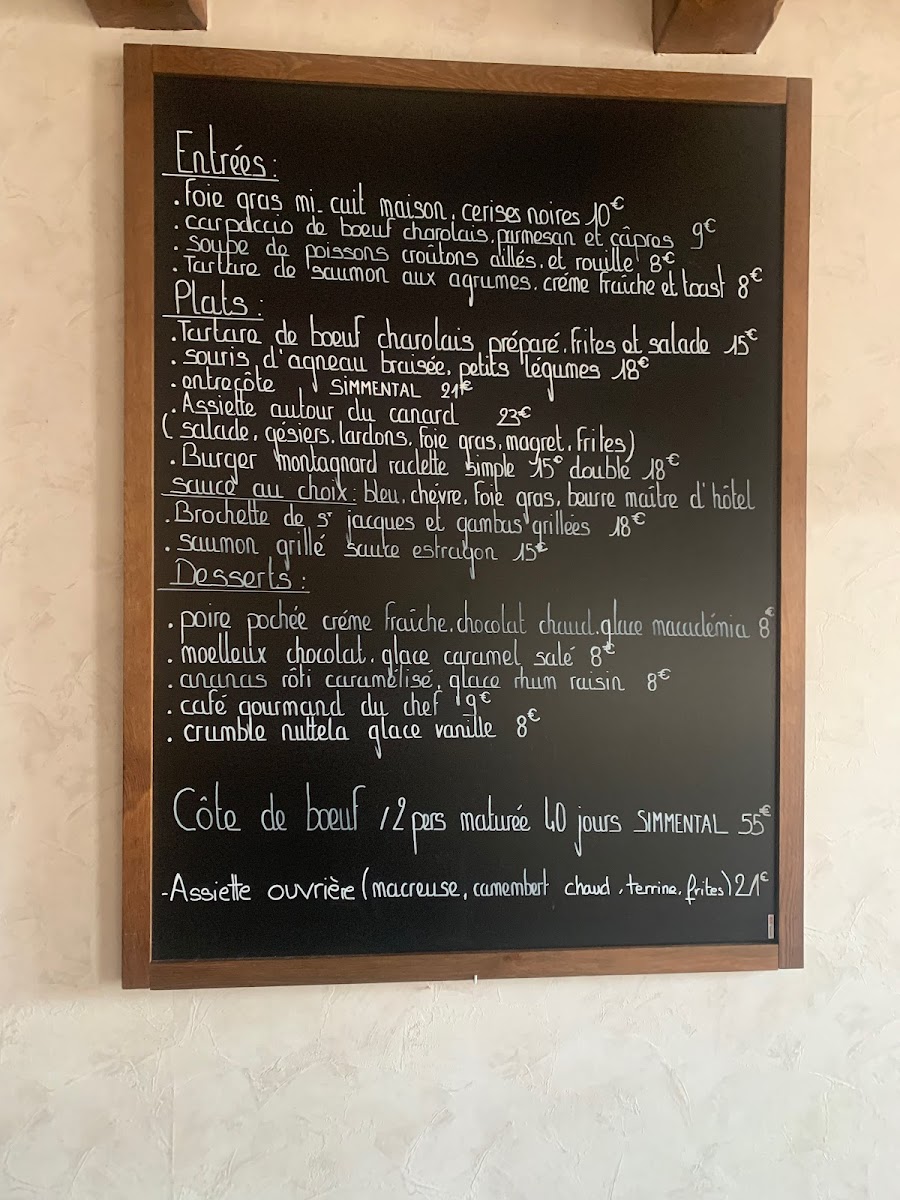 Entrées :
. Foie gras mi-cuit maison, cerises noires 10€
. carpaccio de boeuf charolais, parmesan et câpres 9€
. soupe de poissons croûtons aillés, et rouille 8€
. Tartare de saumon aux agrumes, créme fraîche et toast 8€
Plats :
. Tartare de boeuf charolais préparé, frites et salade 15€
. souris d'agneau braisée, petits légumes 18€
. entrecôte SIMMENTAL 21€
. Assiette autour du canard 23€
(salade, gésiers, lardons, foie gras, magret, frites)
. Burger montagnard raclette simple 15€ double 18€
sauce au choix : bleu, chévre, foie gras, beurre maître d'hôtel
. Brochette de st jacques et gambas grillées 18€
. saumon grillé sauce estragon 15€
Desserts :
. poire pochée créme fraîche, chocolat chaud, glace macadémia 8€
. moelleux chocolat, glace caramel salé 8€
. ananas rôti caramélisé, glace rhum raisin 8€
. café gourmand du chef 9€
. crumble nuttela glace vanille 8€
Côte de boeuf /2 pers maturée 40 jours SIMMENTAL 55€
- Assiette ouvrière (macreuse, camembert chaud, terrine, frites) 21€